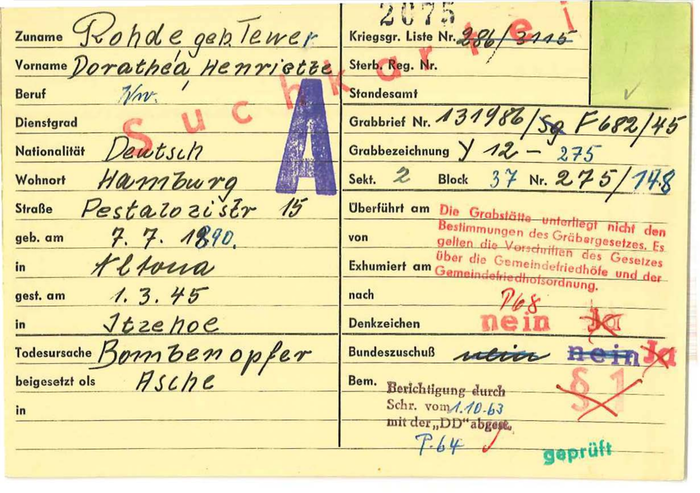 2075
Suchkartei
Zuname Rohde geb. Tewer
Vorname Dorathea Henriette
Beruf
Dienstgrad
Nationalität Deutsch
Wohnort Hamburg
Straße Pestalozistr 15
geb. am 7. 7. 1890.
in Altona
gest. am 1. 3. 45
in Itzehoe
Todesursache Bombenopfer
beigesetzt als Asche
in
A
Kriegsgr. Liste Nr. 286/3115
Sterb. Reg. Nr.
Standesamt
Grabbrief Nr. 131986/Sg F 682/45
Grabbezeichnung Y 12 - 275
Sekt. 2 Block 37 Nr. 275/148
Überführt am
von
Exhumiert am
nach
Die Grabstätte unterliegt nicht den
Bestimmungen des Gräbergesetzes. Es
gelten die Vorschriften des Gesetzes
über die Gemeindefriedhöfe und der
Gemeindefriedhofsordnung.
P68
Denkzeichen nein Ja
Bundeszuschuß nein nein Ja
§ 1
Bem.
Berichtigung durch
Schr. vom 1.10.63
mit der „DD" abgest.
P.64
geprüft